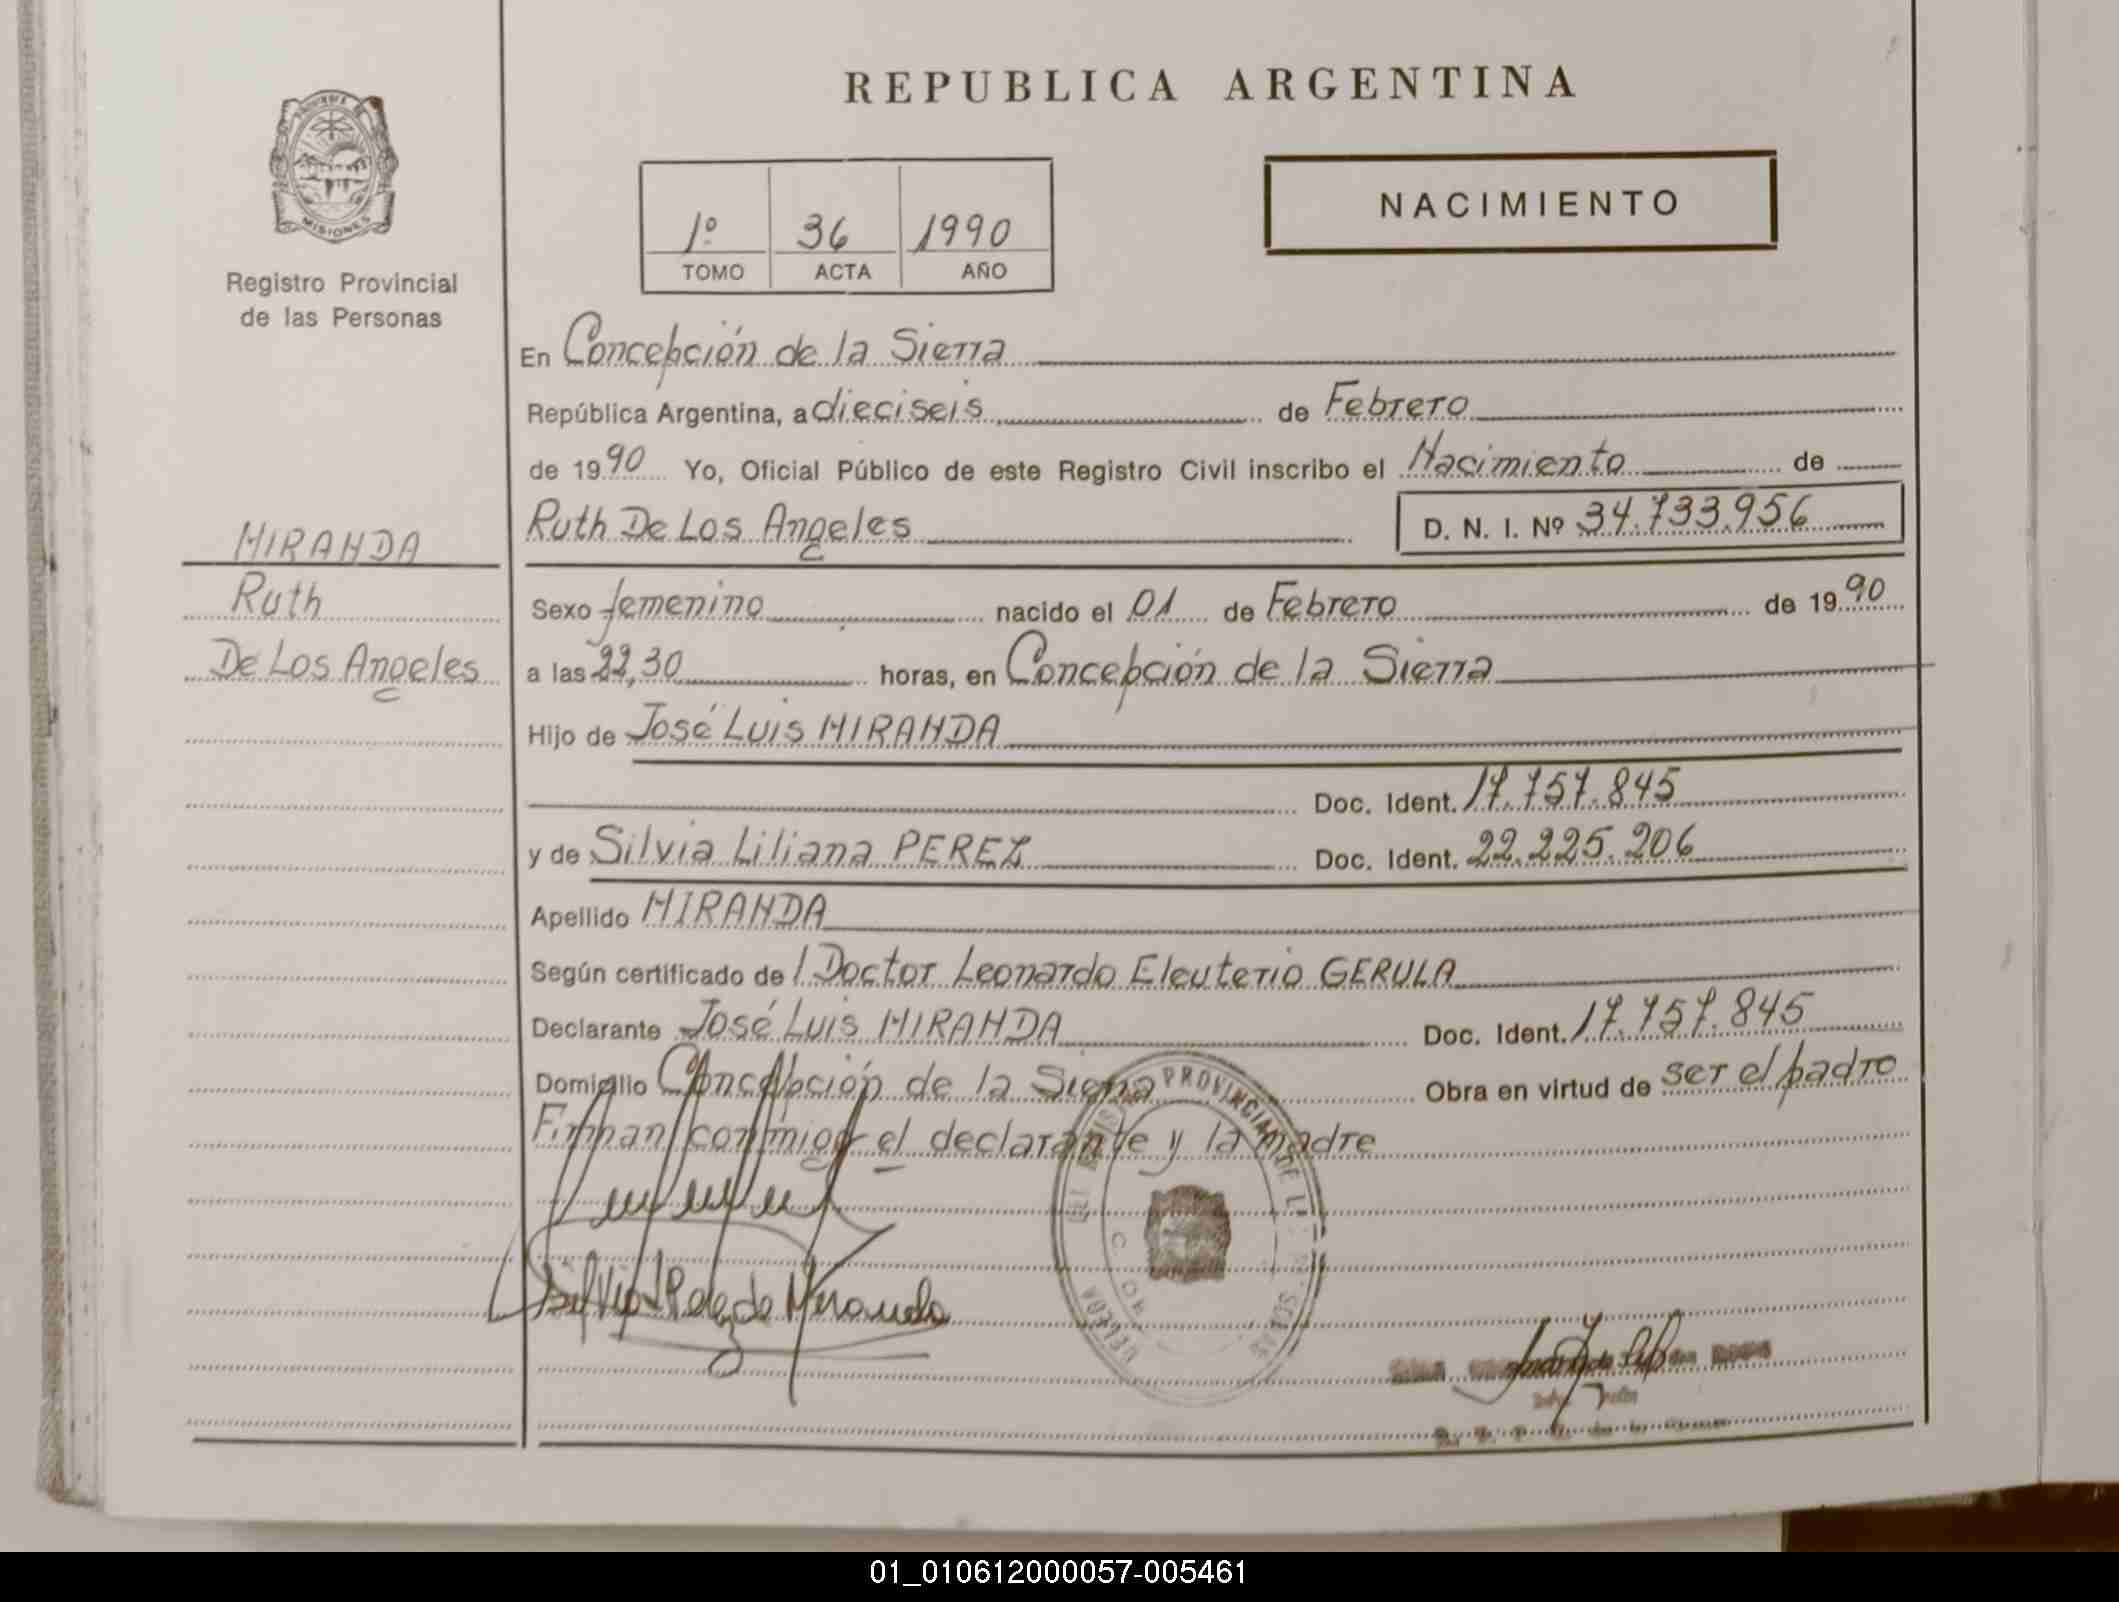 REPUBLICA ARGENTINA
MISIONES
Registro Provincial
de las Personas
1º 36 1990
TOMO ACTA AÑO
NACIMIENTO
En Concepción de la Sierra
República Argentina, a dieciseis de Febrero
de 1990 Yo, Oficial Público de este Registro Civil inscribo el Nacimiento de
Ruth De Los Angeles D. N. I. Nº 34.733.956
MIRANDA
Ruth
De Los Angeles
Sexo femenino nacido el 01 de Febrero de 1990
a las 22,30 horas, en Concepción de la Sierra
Hijo de José Luis MIRANDA
Doc. Ident. 17.757.845
y de Silvia Liliana PEREZ Doc. Ident. 22.225.206
Apellido MIRANDA
Según certificado de l Doctor Leonardo Eleuterio GERULA
Declarante José Luis MIRANDA Doc. Ident. 17.757.845
Domicilio Concepción de la Sierra Obra en virtud de ser el padre
Firman conmigo el declarante y la madre
PROVINCIAL DE
Silvia Perez de Miranda
01_010612000057-005461